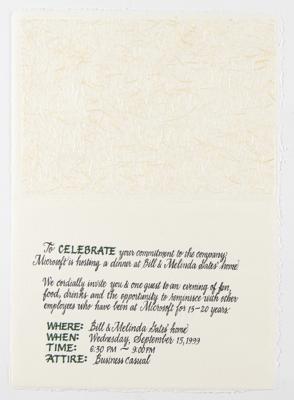 To CELEBRATE your commitment to the company,
Microsoft is hosting a dinner at Bill & Melinda Gates' home.
We cordially invite you & one guest to an evening of fun,
food, drinks and the opportunity to reminisce with other
employees who have been at Microsoft for 15-20 years.
WHERE: Bill & Melinda Gates' home
WHEN: Wednesday, September 15, 1999
TIME: 6:30 PM ~ 9:00 PM
ATTIRE: Business Casual